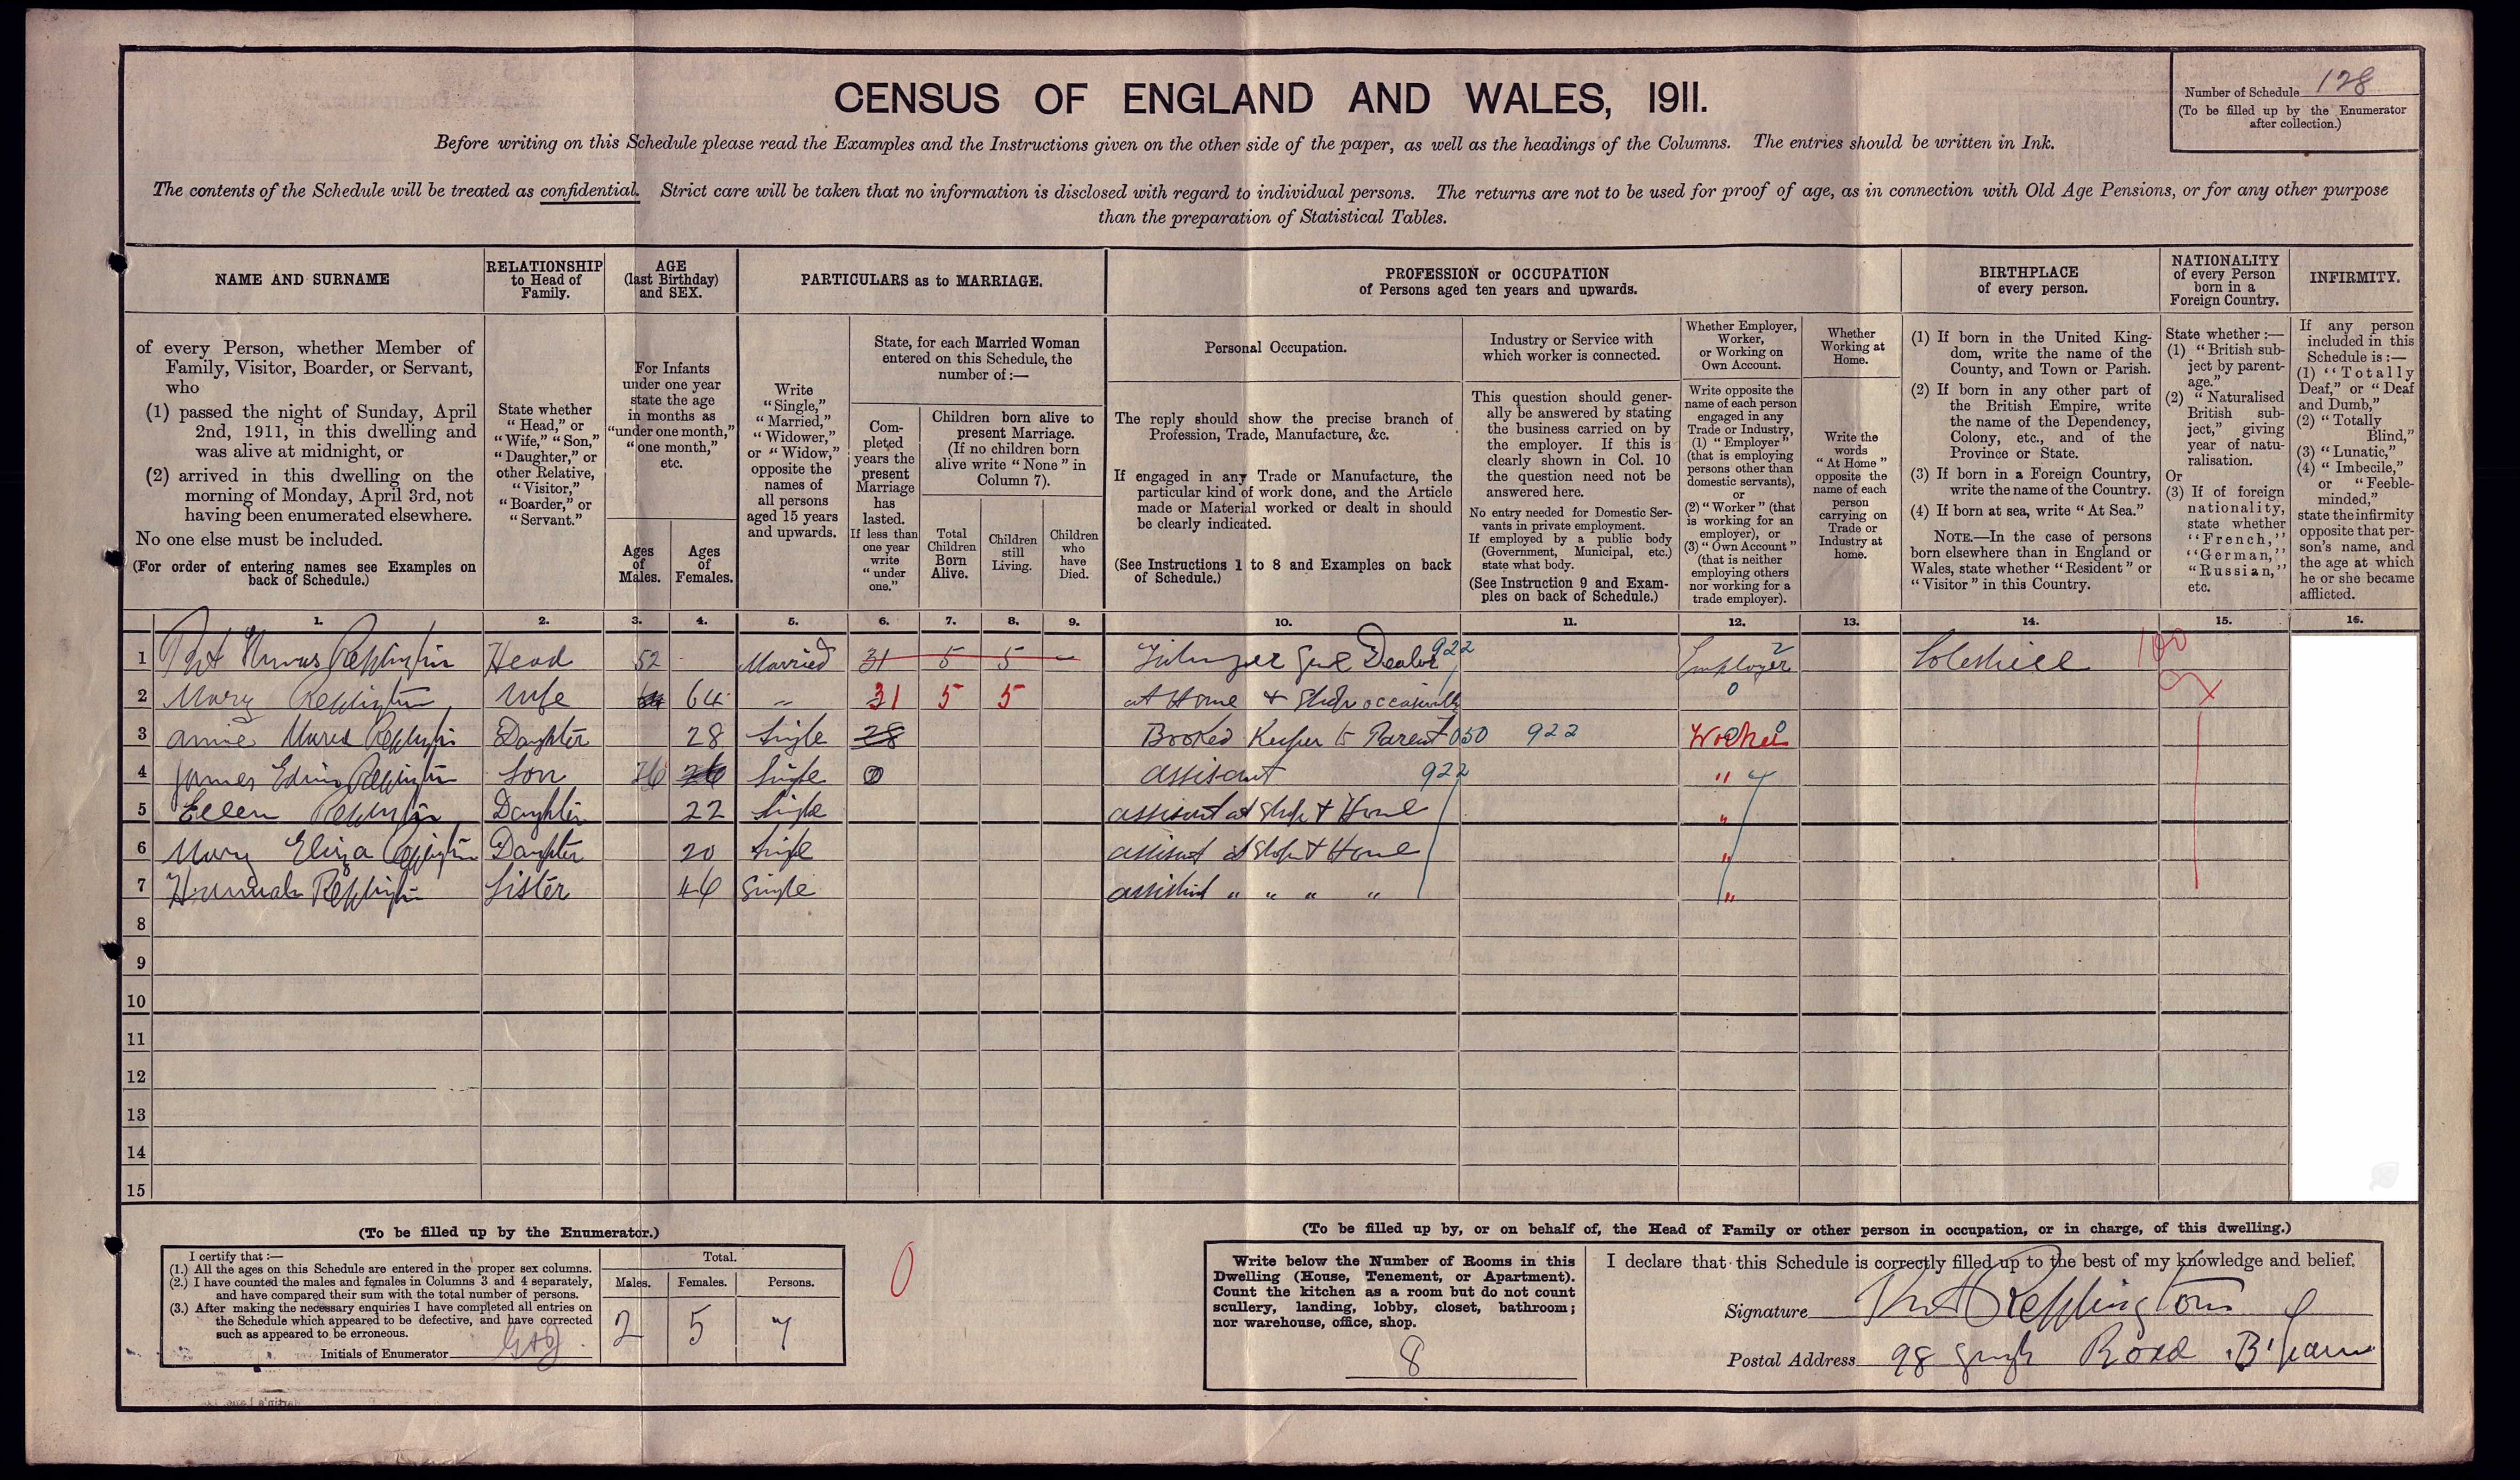 CENSUS OF ENGLAND AND WALES, 1911.
Number of Schedule 128
(To be filled up by the Enumerator
after collection.)
Before writing on this Schedule please read the Examples and the Instructions given on the other side of the paper, as well as the headings of the Columns. The entries should be written in Ink.
The contents of the Schedule will be treated as confidential. Strict care will be taken that no information is disclosed with regard to individual persons. The returns are not to be used for proof of age, as in connection with Old Age Pensions, or for any other purpose
than the preparation of Statistical Tables.
NAME AND SURNAME
of every Person, whether Member of
Family, Visitor, Boarder, or Servant,
who
(1) passed the night of Sunday, April
2nd, 1911, in this dwelling and
was alive at midnight, or
(2) arrived in this dwelling on the
morning of Monday, April 3rd, not
having been enumerated elsewhere.
No one else must be included.
(For order of entering names see Examples on
back of Schedule.)
RELATIONSHIP
to Head of
Family.
State whether
"Head," or
"Wife," "Son,"
"Daughter," or
other Relative,
"Visitor,"
"Boarder," or
"Servant."
AGE
(last Birthday)
and SEX.
For Infants
under one year
state the age
in months as
"under one month,"
"one month,"
etc.
Ages
of
Males.
Ages
of
Females.
PARTICULARS as to MARRIAGE.
Write
"Single,"
"Married,"
"Widower,"
or "Widow,"
opposite the
names of
all persons
aged 15 years
and upwards.
State, for each Married Woman
entered on this Schedule, the
number of :—
Com-
pleted
years the
present
Marriage
has
lasted.
If less than
one year
write
"under
one."
Children born alive to
present Marriage.
(If no children born
alive write "None" in
Column 7).
Total
Children
Born
Alive.
Children
still
Living.
Children
who
have
Died.
PROFESSION or OCCUPATION
of Persons aged ten years and upwards.
Personal Occupation.
The reply should show the precise branch of
Profession, Trade, Manufacture, &c.
If engaged in any Trade or Manufacture, the
particular kind of work done, and the Article
made or Material worked or dealt in should
be clearly indicated.
(See Instructions 1 to 8 and Examples on back
of Schedule.)
Industry or Service with
which worker is connected.
This question should gener-
ally be answered by stating
the business carried on by
the employer. If this is
clearly shown in Col. 10
the question need not be
answered here.
No entry needed for Domestic Ser-
vants in private employment.
If employed by a public body
(Government, Municipal, etc.)
state what body.
(See Instruction 9 and Exam-
ples on back of Schedule.)
Whether Employer,
Worker,
or Working on
Own Account.
Write opposite the
name of each person
engaged in any
Trade or Industry,
(1) "Employer"
(that is employing
persons other than
domestic servants),
or
(2) "Worker" (that
is working for an
employer), or
(3) "Own Account"
(that is neither
employing others
nor working for a
trade employer).
Whether
Working at
Home.
Write the
words
"At Home"
opposite the
name of each
person
carrying on
Trade or
Industry at
home.
BIRTHPLACE
of every person.
(1) If born in the United King-
dom, write the name of the
County, and Town or Parish.
(2) If born in any other part of
the British Empire, write
the name of the Dependency,
Colony, etc., and of the
Province or State.
(3) If born in a Foreign Country,
write the name of the Country.
(4) If born at sea, write "At Sea."
NOTE.—In the case of persons
born elsewhere than in England or
Wales, state whether "Resident" or
"Visitor" in this Country.
NATIONALITY
of every Person
born in a
Foreign Country.
State whether :—
(1) "British sub-
ject by parent-
age."
(2) "Naturalised
British sub-
ject," giving
year of natu-
ralisation.
Or
(3) If of foreign
nationality,
state whether
"French,"
"German,"
"Russian,"
etc.
INFIRMITY.
If any person
included in this
Schedule is :—
(1) "Totally
Deaf," or "Deaf
and Dumb,"
(2) "Totally
Blind,"
(3) "Lunatic,"
(4) "Imbecile,"
or "Feeble-
minded,"
state the infirmity
opposite that per-
son's name, and
the age at which
he or she became
afflicted.
1. 2. 3. 4. 5. 6. 7. 8. 9. 10. 11. 12. 13. 14. 15. 16.
1 Thomas Repplington Head 52 Married 31 5 5 – Dealer 922 Employer 2 Coleshill 100
2 Mary Repplington Wife 64 " 31 5 5 at Home & Shop occasionally 0
3 Annie Repplington Daughter 28 Single 28 Booked Keeper to Parent 050 922 Worker
4 James Edwin Repplington Son 26 26 Single assisant 922 " 4
5 Ellen Repplington Daughter 22 Single assisant at Shop & Home "
6 Mary Eliza Repplington Daughter 20 Single assisant at Shop & Home "
7 Hannah Repplington Sister 46 Single assistant " " " " "
8
9
10
11
12
13
14
15
(To be filled up by the Enumerator.)
I certify that :—
(1.) All the ages on this Schedule are entered in the proper sex columns.
(2.) I have counted the males and females in Columns 3 and 4 separately,
and have compared their sum with the total number of persons.
(3.) After making the necessary enquiries I have completed all entries on
the Schedule which appeared to be defective, and have corrected
such as appeared to be erroneous.
Initials of Enumerator
Total.
Males. Females. Persons.
2 5 7
0
(To be filled up by, or on behalf of, the Head of Family or other person in occupation, or in charge, of this dwelling.)
Write below the Number of Rooms in this
Dwelling (House, Tenement, or Apartment).
Count the kitchen as a room but do not count
scullery, landing, lobby, closet, bathroom;
nor warehouse, office, shop.
8
I declare that this Schedule is correctly filled up to the best of my knowledge and belief.
Signature Repplington
Postal Address 98 Road B'ham